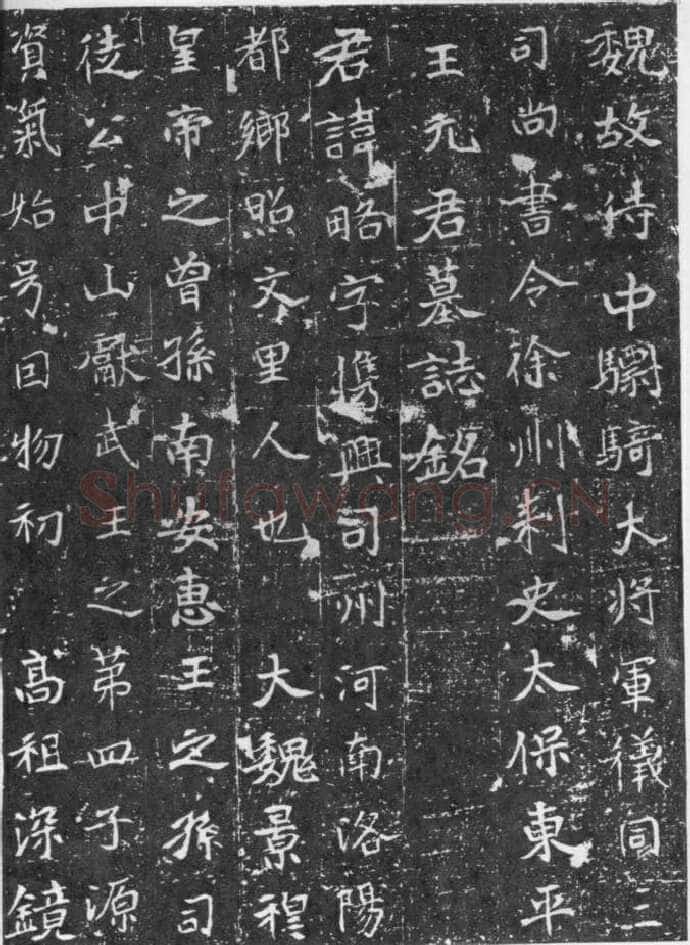 魏故侍中驃騎大將軍儀同三
司尚書令徐州刺史太保東平
王元君墓誌銘
君諱略字㑺興司州河南洛陽
都鄉照文里人也 大魏景穆
皇帝之曾孫南安惠王之孫司
徒公中山獻武王之第四子源
資氣始号回物初 高祖深鏡
Shufawang.CN